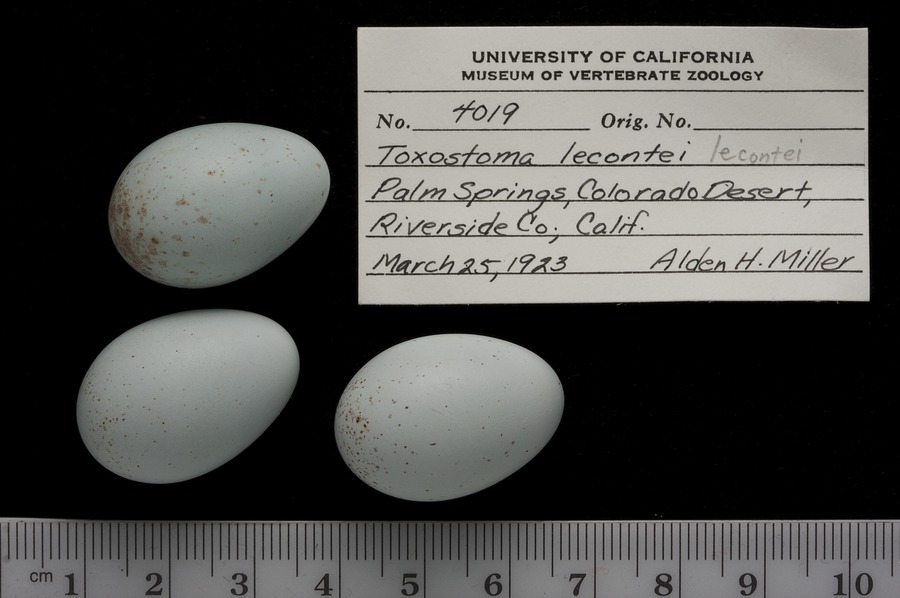 UNIVERSITY OF CALIFORNIA
MUSEUM OF VERTEBRATE ZOOLOGY
No. 4019 Orig. No.
Toxostoma lecontei lecontei
Palm Springs, Colorado Desert,
Riverside Co., Calif.
March 25, 1923 Alden H. Miller
cm 1 2 3 4 5 6 7 8 9 10